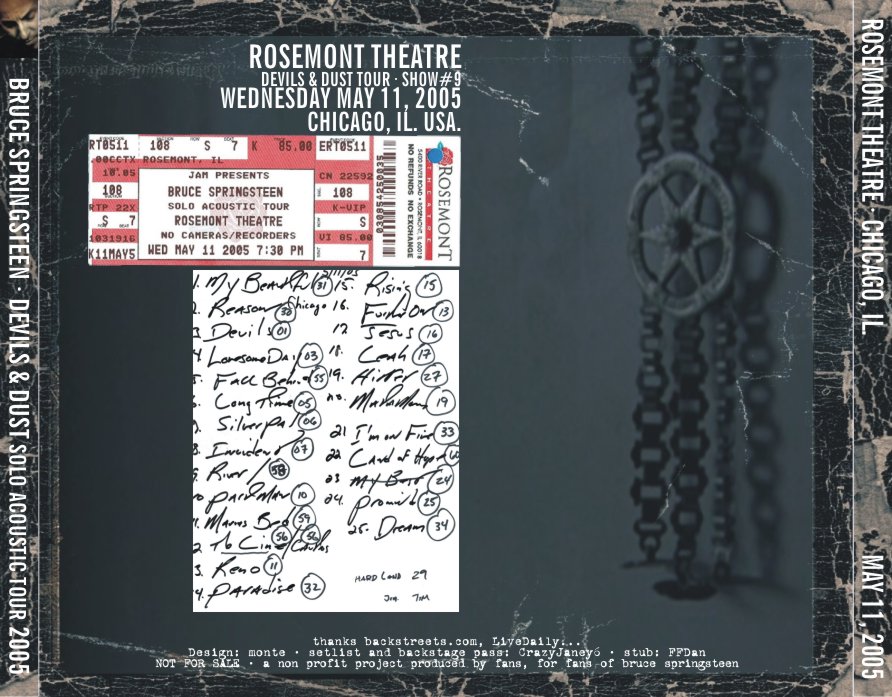 ROSEMONT THEATRE
DEVILS & DUST TOUR · SHOW#9
WEDNESDAY MAY 11, 2005
CHICAGO, IL. USA.
BRUCE SPRINGSTEEN · DEVILS & DUST SOLO ACOUSTIC TOUR 2005
ROSEMONT THEATRE · CHICAGO, IL MAY 11, 2005
RT0511 108 S 7 K 85.00 ERT0511
00CCTX ROSEMONT, IL
10.05 JAM PRESENTS CN 22592
108 BRUCE SPRINGSTEEN 108
RTP 22X SOLO ACOUSTIC TOUR K-VIP
S 7 ROSEMONT THEATRE S
1031916 NO CAMERAS/RECORDERS VI 85.00
K11MAY5 WED MAY 11 2005 7:30 PM 7
ROSEMONT
THEATRE
5400 RIVER ROAD • ROSEMONT, IL 60018
NO REFUNDS NO EXCHANGE
5/11/05
Chicago
1. My Beautiful 31
2. Reason 30
3 Devils 01
4 Lonesome Day 03
5. Fall Behind 55
6. Long Time 05
7. Silver Pal 06
8. Incident 07
9. River 58
10 Park Man 10
11. Mamas Bed 59
2. Tb Cin / Cautas 56 56
3. Reno 11
4. Paradise 32
15. Rising 15
16. Further On 13
17 Jesus 16
18. Leah 17
19. Hitter 27
20. Matamoros 19
21 I'm on Fire 33
22 Land of Hope
23 My Best 24
24. Promised 25
25. Dream 34
HARD LAND 29
JIM 7IM
thanks backstreets.com, LiveDaily...
Design: monte · setlist and backstage pass: CrazyJaney6 · stub: FFDan
NOT FOR SALE · a non profit project produced by fans, for fans of bruce springsteen